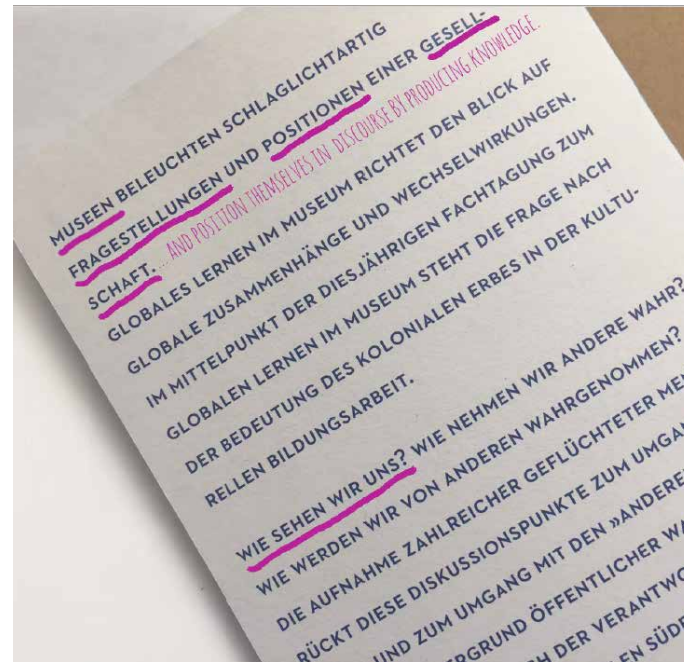 MUSEEN BELEUCHTEN SCHLAGLICHTARTIG
FRAGESTELLUNGEN UND POSITIONEN EINER GESELL-
SCHAFT.
...AND POSITION THEMSELVES IN DISCOURSE BY PRODUCING KNOWLEDGE.
GLOBALES LERNEN IM MUSEUM RICHTET DEN BLICK AUF
GLOBALE ZUSAMMENHÄNGE UND WECHSELWIRKUNGEN.
IM MITTELPUNKT DER DIESJÄHRIGEN FACHTAGUNG ZUM
GLOBALEN LERNEN IM MUSEUM STEHT DIE FRAGE NACH
DER BEDEUTUNG DES KOLONIALEN ERBES IN DER KULTU-
RELLEN BILDUNGSARBEIT.
WIE SEHEN WIR UNS? WIE NEHMEN WIR ANDERE WAHR?
WIE WERDEN WIR VON ANDEREN WAHRGENOMMEN?
DIE AUFNAHME ZAHLREICHER GEFLÜCHTETER
RÜCKT DIESE DISKUSSIONSPUNKTE ZUM
UND ZUM UMGANG MIT DEN
ÖFFENTLICHER
DER